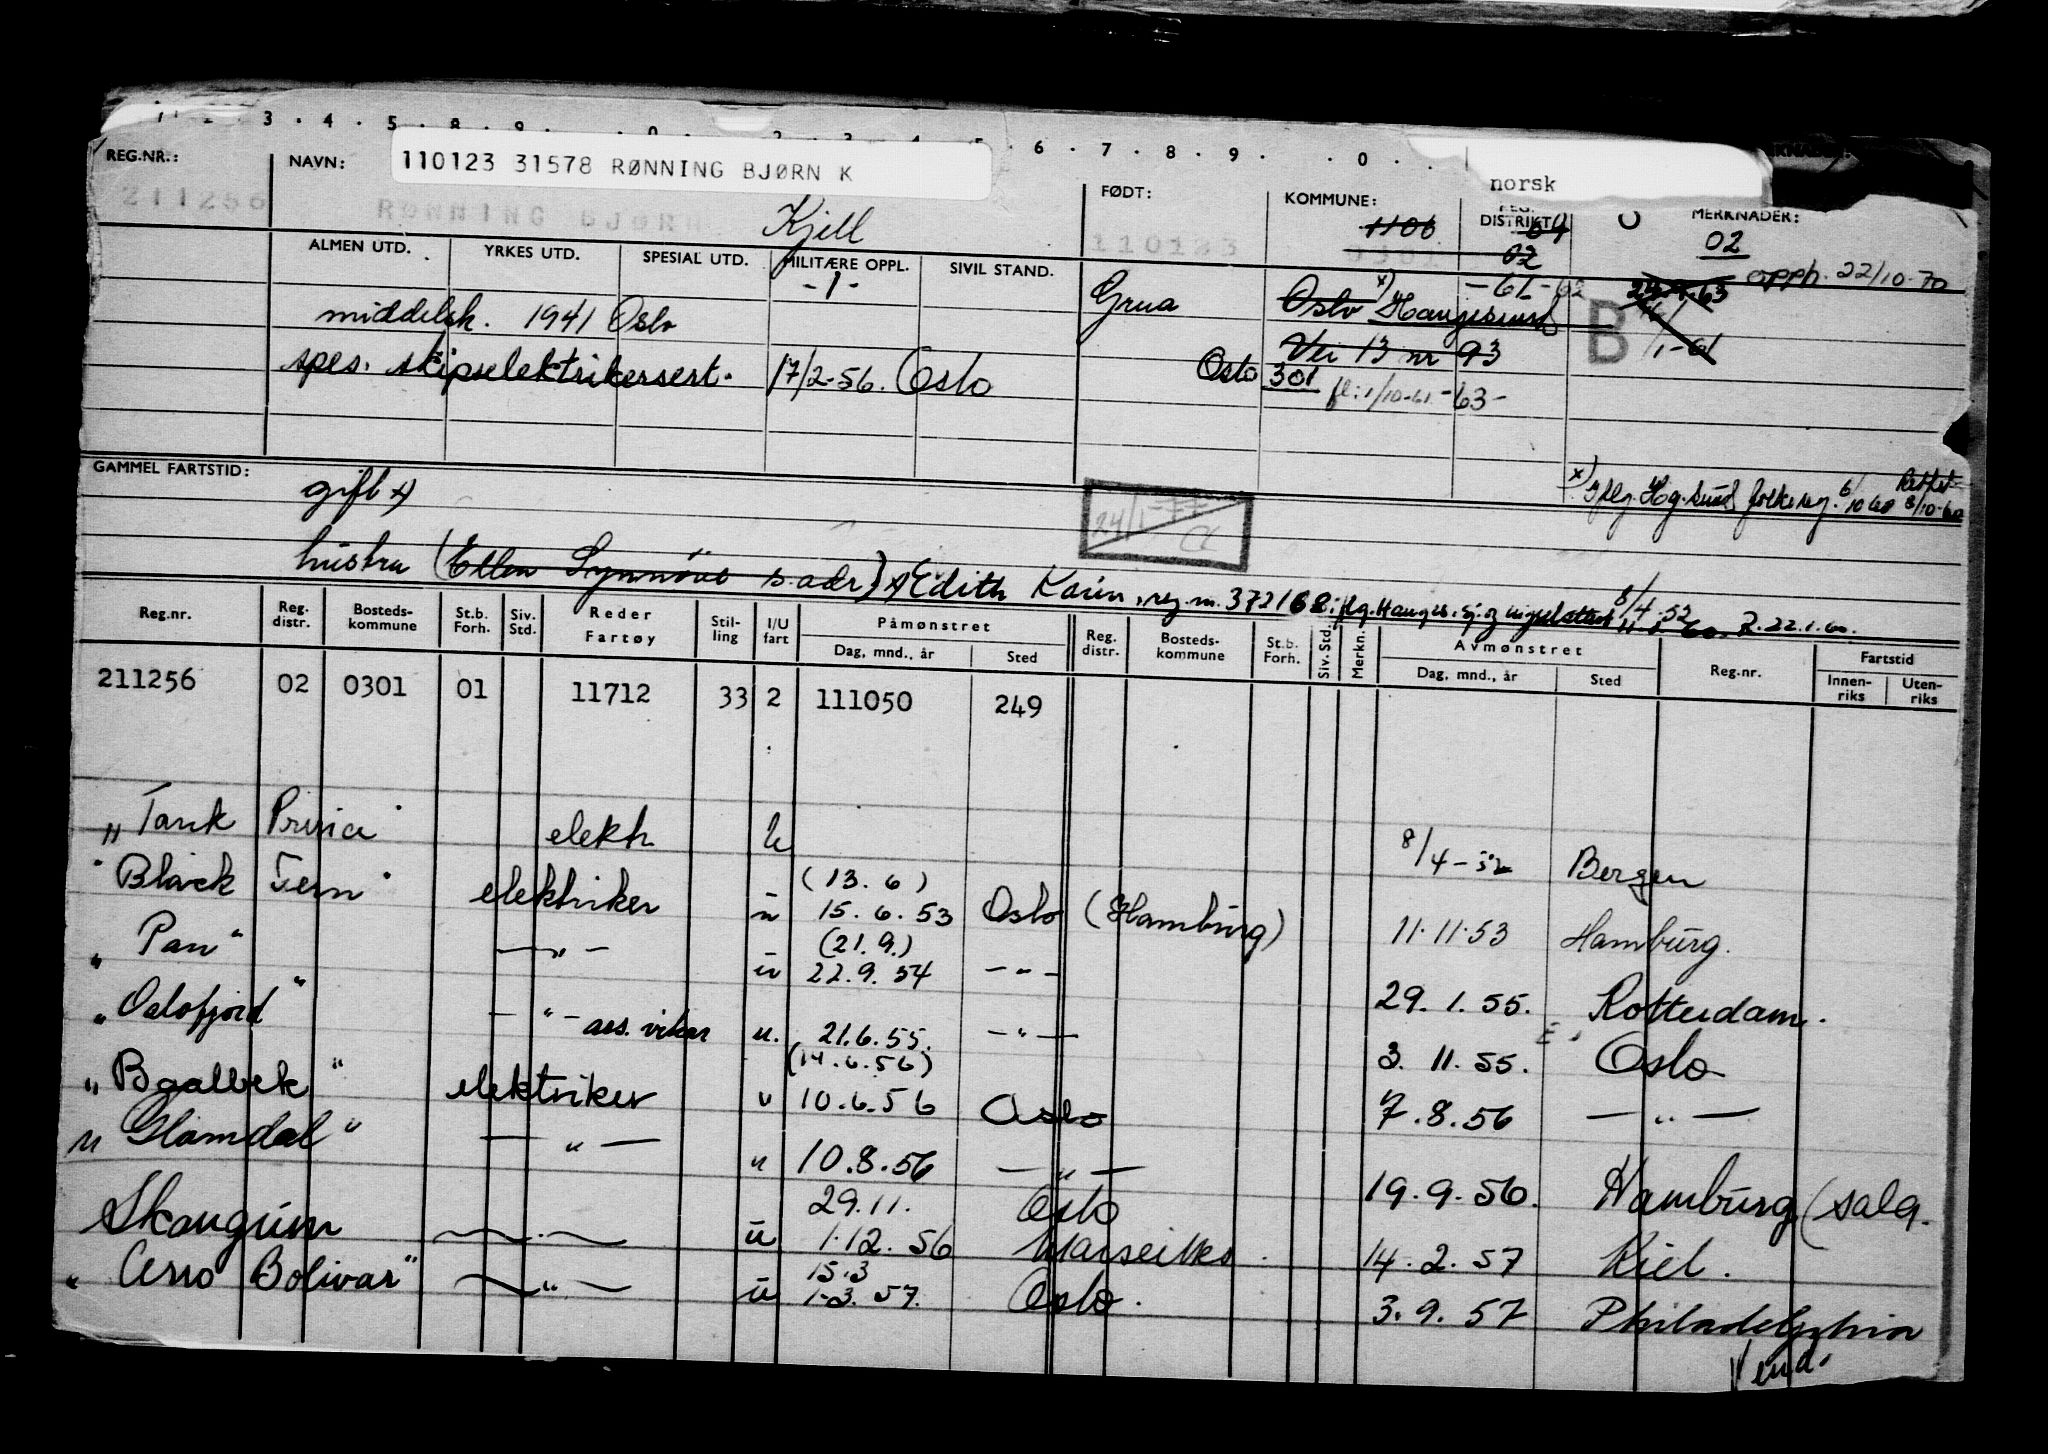 REG.NR.: NAVN: 110123 31578 RØNNING BJØRN K
FØDT: KOMMUNE: DISTRIKT norsk MERKNADER:
211256 RØNNING BJØRN Kjell 110123 1106 64 02
02
ALMEN UTD. YRKES UTD. SPESIAL UTD. MILITÆRE OPPL. SIVIL STAND.
-1- -61-62 opph. 22/10-70
middelsk. 1941 Oslo Grua Oslo x) Haugesund B
Vei 13 nr 93 1/1-61
spes. skipselektrikersert. 17/2-56. Oslo Oslo 301
fl: 1/10-61 -63-
GAMMEL FARTSTID: gift x)
x) iflg. Hg.sund folkereg. 6/10 60 Rettet 8/10-60
24/1-77
hustru (Ellen Synnöve s.adr) x) Edith Karin, reg.nr. 372168
8/4-52
R. 22.1.60.
Reg.nr. Reg. distr. Bosteds-kommune St.b. Forh. Siv. Std. Reder Fartøy Stil-ling I/U fart Påmønstret Dag, mnd., år Sted Reg. distr. Bosteds-kommune St.b. Forh. Siv. Std. Merkn. Avmønstret Dag, mnd., år Sted Reg.nr. Fartstid Innen-riks Uten-riks
211256 02 0301 01 11712 33 2 111050 249
"Tank Princ elektr. u 8/4-52 Bergen
(13.6)
"Black Fern" elektriker u 15.6.53 Oslo (Hamburg) 11.11.53 Hamburg.
(21.9.)
"Pan" —"— u 22.9.54 —"— 29.1.55. Rotterdam.
"Oslofjord" —"— ass. vikar u. 21.6.55. —"— 3.11.55. Oslo
(14.6.56)
"Baalbek" elektriker u 10.6.56 Oslo 7.8.56 —"—
"Glomdal" —"— u 10.8.56 —"— 19.9.56. Hamburg (salg.
29.11. Oslo
Skaugum —"— u 1.12.56 Marseilles. 14.2.57 Kiel.
15.3
"Cerro Bolivar" —"— u 1-3.57. Oslo. 3.9.57 Philadelphia
Vend.